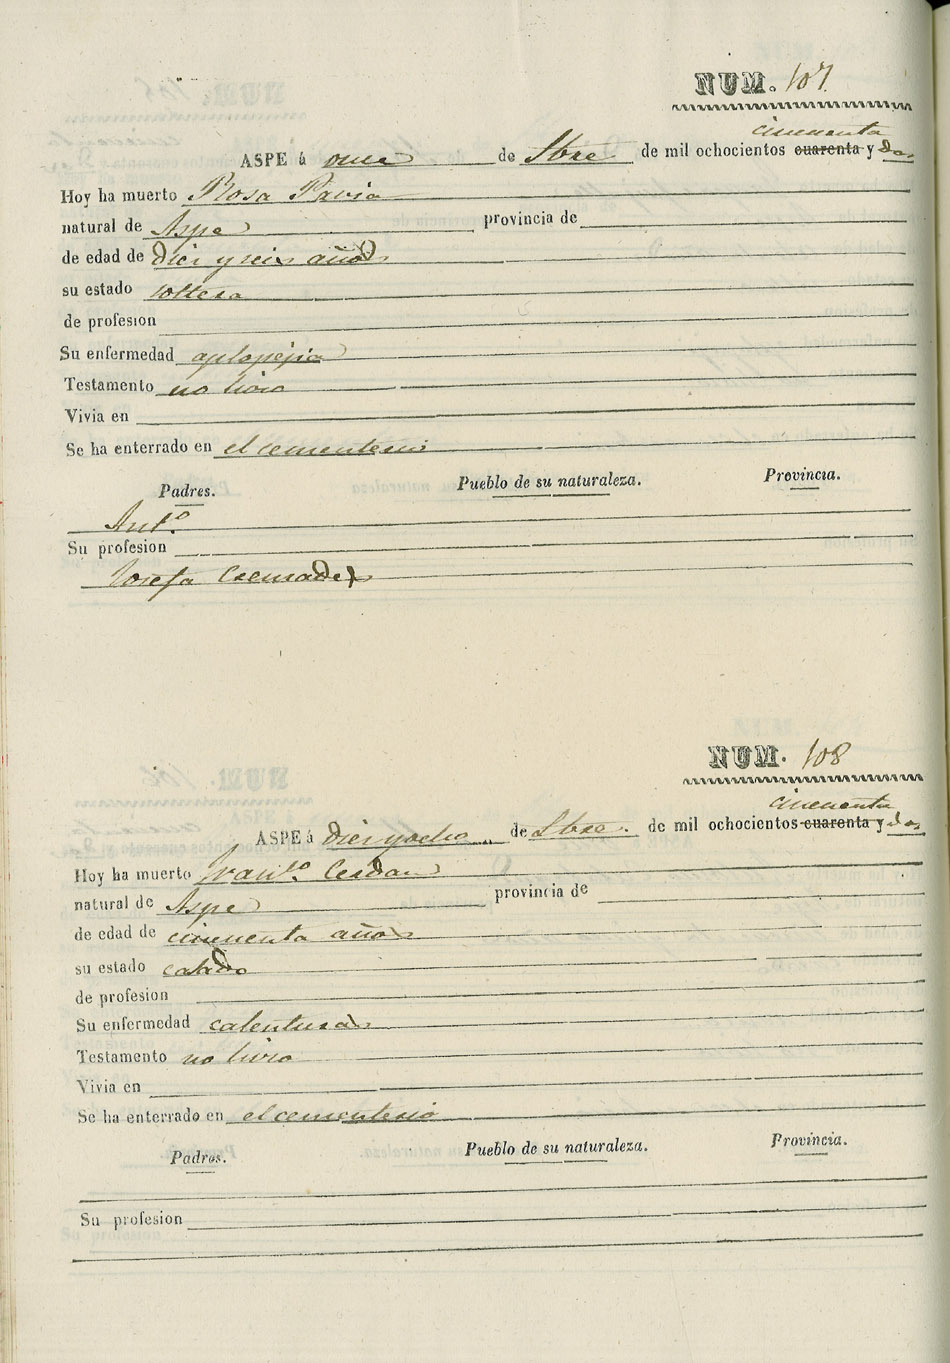 NUM. 107
cincuenta
ASPE á once de Sbre de mil ochocientos cuarenta y dos
Hoy ha muerto Rosa Pavia
natural de Aspe provincia de
de edad de diez y seis años
su estado soltera
de profesion
Su enfermedad aplopejia
Testamento no hiso
Vivia en
Se ha enterrado en el cementerio
Padres. Pueblo de su naturaleza. Provincia.
Ant.º
Su profesion
Josefa Cremades
NUM. 108
cincuenta
ASPE á diez y ocho de Sbre. de mil ochocientos cuarenta y dos
Hoy ha muerto Fran.co Cerdan
natural de Aspe provincia de
de edad de cincuenta años
su estado casado
de profesion
Su enfermedad calenturas
Testamento no hiso
Vivia en
Se ha enterrado en el cementerio
Padres. Pueblo de su naturaleza. Provincia.
Su profesion